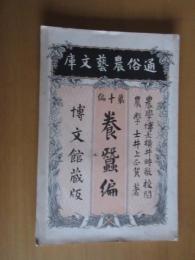 通俗農藝文庫
農學博士横井時敬校閲
農學士井上正賀著
第十編
養蠶編
博文館蔵版